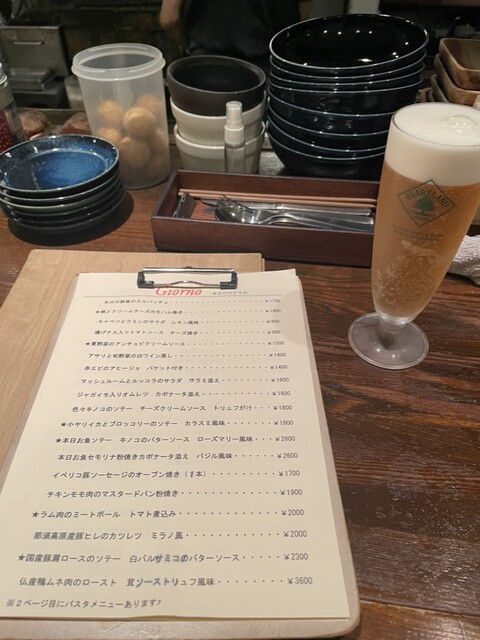 Giorno
本日の鮮魚のカルパッチョ ・・・・・・・・・・・・・・・・・ ¥1700
キャベツとクミンのサラダ レモン風味・・・・・・・・・・・ ¥800
揚げナス入りトマトソース チーズ焼き・・・・・・・・・・・ ¥900
★夏野菜のアンチョビクリームソース・・・・・・・・・・・ ¥1500
アサリと旬野菜の白ワイン蒸し・・・・・・・・・・・・・・ ¥1400
赤エビのアヒージョ バケット付き・・・・・・・・・・・・ ¥1400
マッシュルームとルッコラのサラダ サラミ添え・・・・・・・ ¥1600
ジャガイモ入りオムレツ カポナータ添え・・・・・・・・・ ¥1600
色々キノコのソテー チーズクリームソース トリュフがけ・・・ ¥1800
★小ヤリイカとブロッコリーのソテー カラスミ風味・・・・・ ¥1800
★本日お魚ソテー キノコのバターソース ローズマリー風味・・ ¥2600
本日お魚セモリナ粉焼きカポナータ添え バジル風味・・・・・ ¥2600
イベリコ豚ソーセージのオーブン焼き(1本)・・・・・・・・ ¥1700
チキンモモ肉のマスタードパン粉焼き・・・・・・・・・・・ ¥1900
★ラム肉のミートボール トマト煮込み・・・・・・・・・・・ ¥2000
那須高原産豚ヒレのカツレツ ミラノ風・・・・・・・・・・ ¥2000
★国産豚肩ロースのソテー 白バルサミコのバターソース・・・・ ¥2300
仏産鴨ムネ肉のロースト 茸ソーストリュフ風味・・・・・・・ ¥3600
※2ページ目にパスタメニューあります♪
HEARTLAND